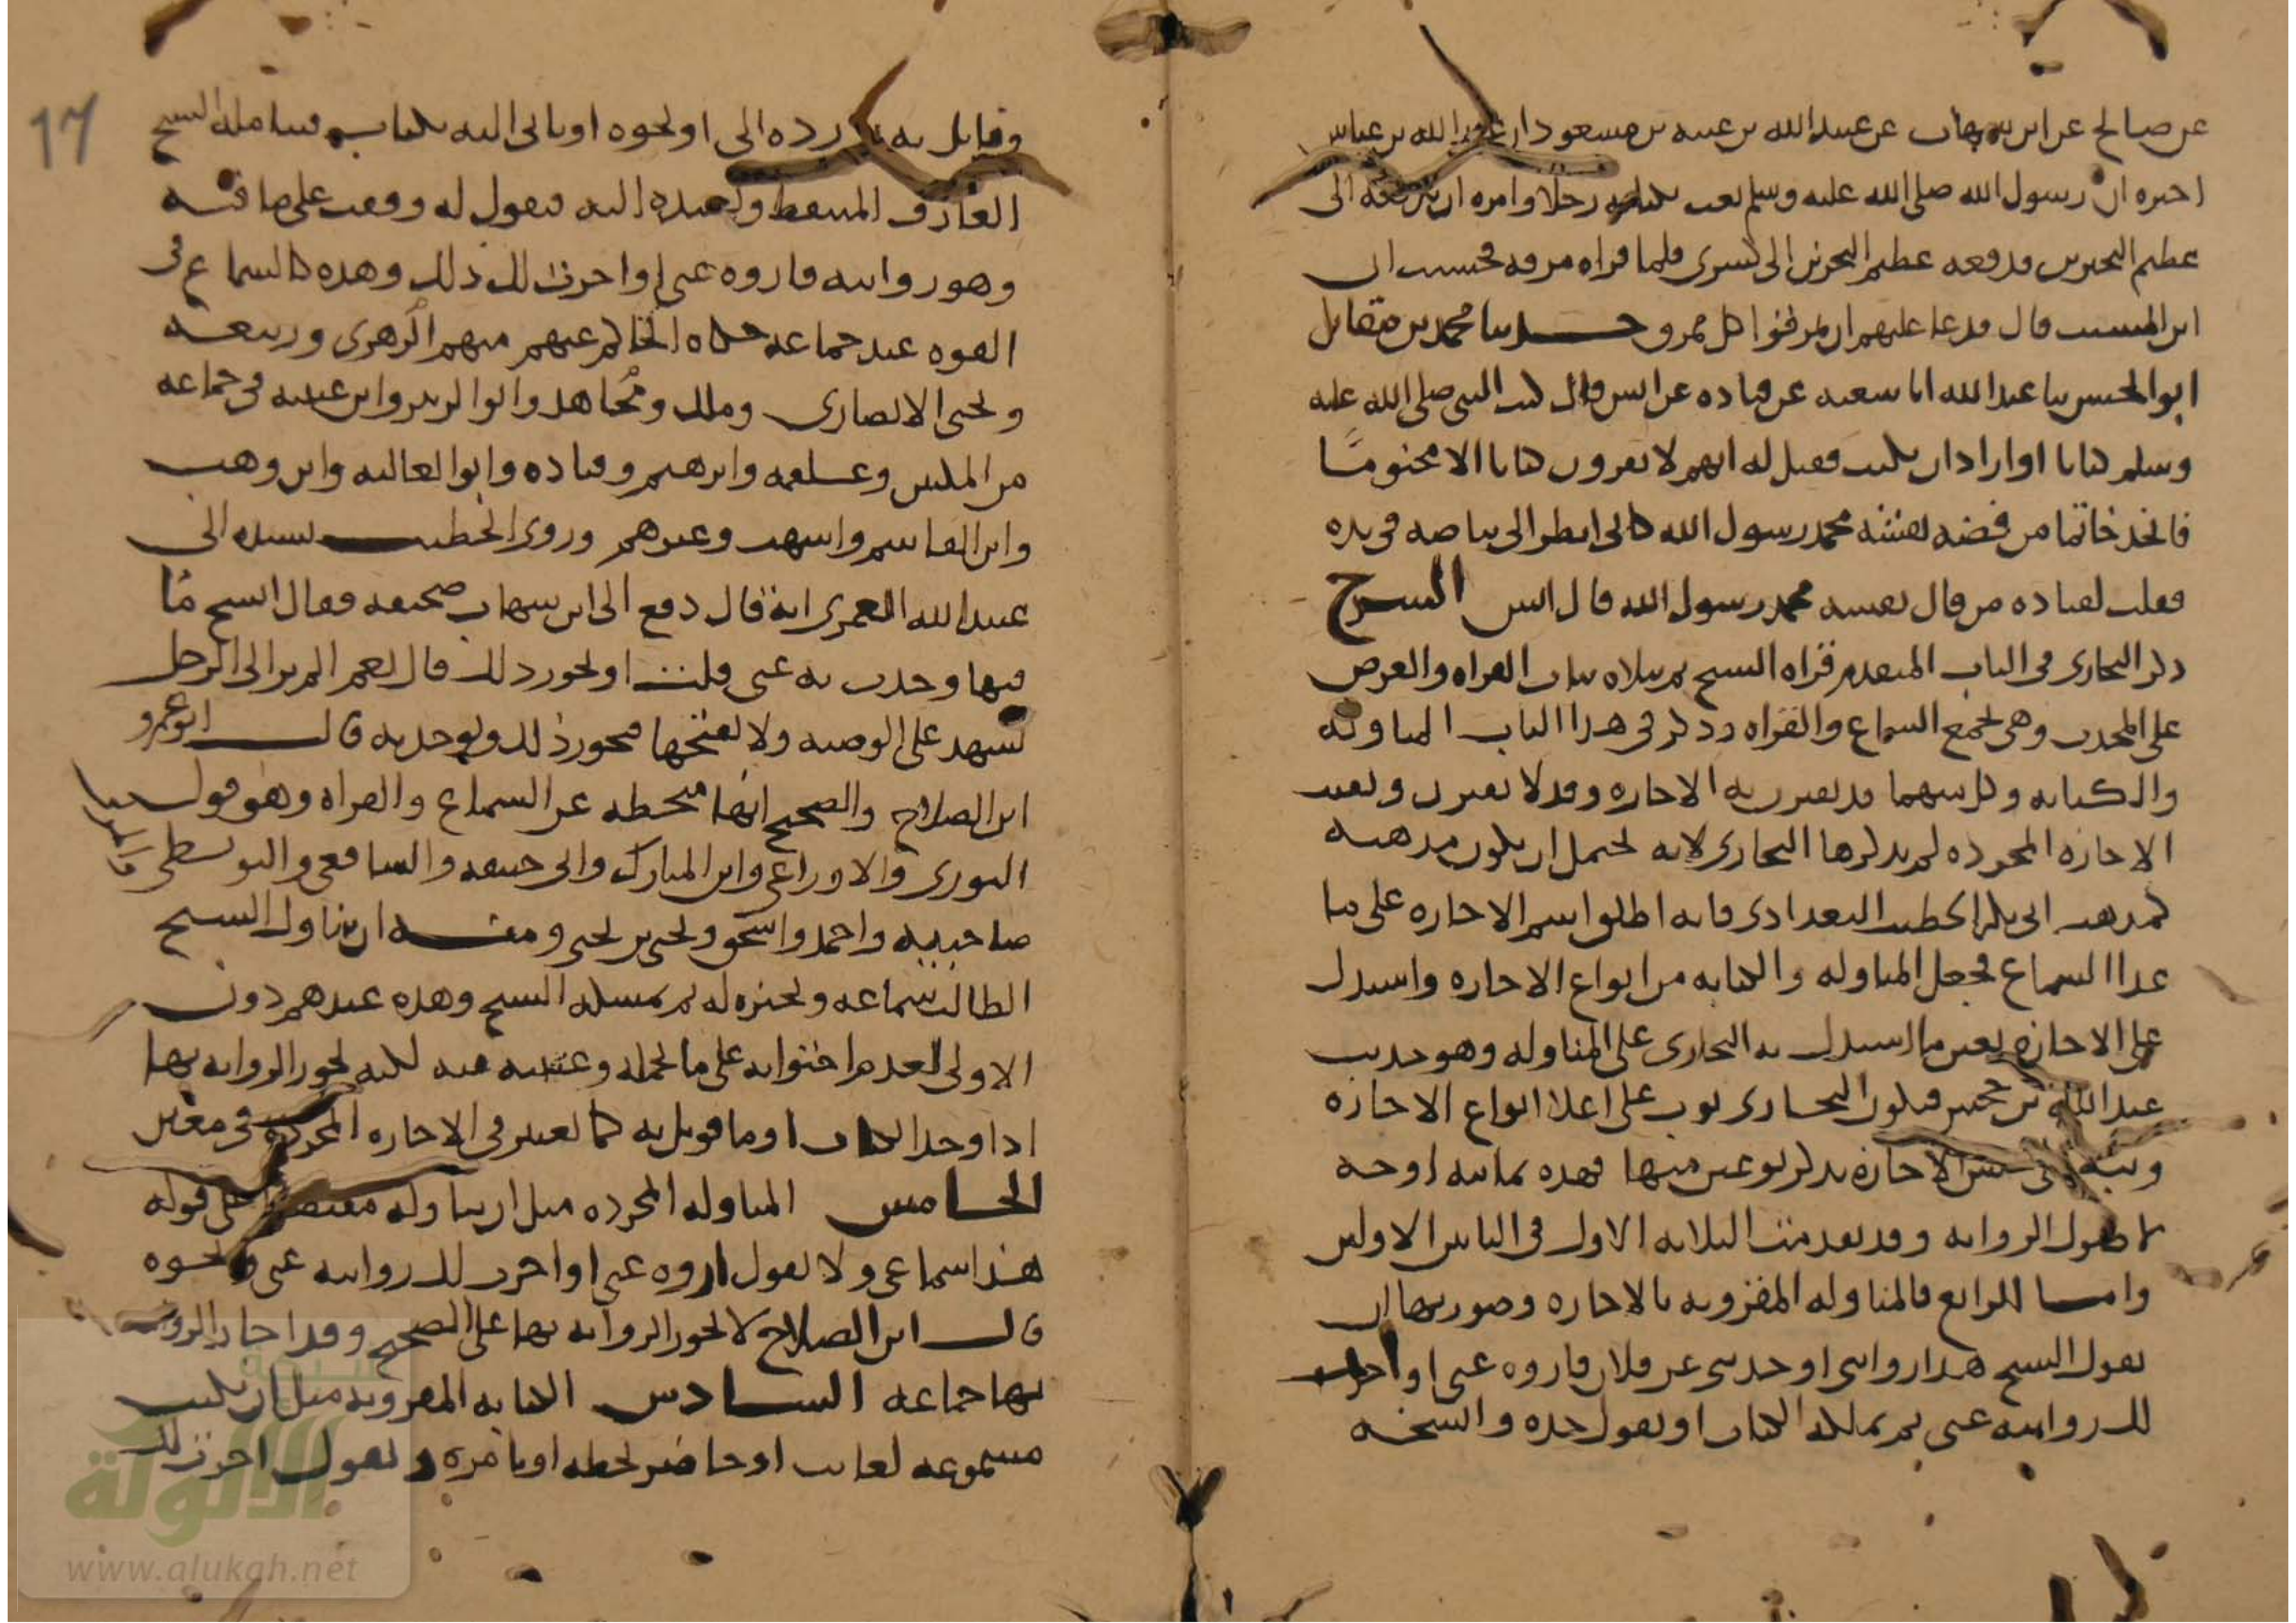 عن صالح عن ابن شهاب عن عبيد الله بن عتبة بن مسعود ان عبد الله بن عباس
اخبره ان رسول الله صلى الله عليه وسلم بعث بكتابه رجلا وامره ان يدفعه الى
عظيم البحرين فدفعه عظيم البحرين الى كسرى فلما قراه مزقه فحسبت ان
ابن المسيب قال فدعا عليهم ان يمزقوا كل ممزق حدثنا محمد بن مقاتل
ابو الحسن ثنا عبد الله انا شعبه عن قتاده عن انس قال كتب النبي صلى الله عليه
وسلم كتابا او اراد ان يكتب فقيل له انهم لا يقرون كتابا الا مختومًا
فاتخذ خاتما من فضه نقشه محمد رسول الله كاني انظر الى بياضه في يده
فقلت لقتاده من قال نقشه محمد رسول الله قال انس الشرح
ذكر البخاري في الباب المتقدم قراه الشيخ ثم تلاه بباب القراه والعرض
على المحدث وهي تجمع السماع والقراه وذكر في هذا الباب المناوله
والكتابه وكل منهما قد تقترن به الاجازه وقد لا تقترن وبقيت
الاجازه المجرده لم يذكرها البخاري لانه يحتمل ان يكون مذهبه
كمذهب ابي بكر الخطيب البغدادي فانه اطلق اسم الاجازه على ما
عدا السماع فجعل المناوله والكتابه من انواع الاجازه واستدل
على الاجازه بعين ما استدل به البخاري على المناوله وهو حديث
عبد الله بن جحش فيكون البخاري بوب على اعلا انواع الاجازه
ونبه على جنس الاجازه بذكر نوعين منها فهذه ثمانيه اوجه
لاصول الروايه وقد تقدمت الثلاثه الاول في البابين الاولين
واما الرابع فالمناوله المقرونه بالاجازه وصورتها ان
يقول الشيخ هذا روايتي او حديثي عن فلان فاروه عني او اجزت
لك روايته عني ثم يملكه الكتاب او يقول خذه وانسخه
17
وقابل به ثم رده الي او نحوه او ياتي اليه بكتاب فيتامله الشيخ
العارف المتيقظ ويعيده اليه فيقول له وقفت على ما فيه
وهو روايته فاروه عني او اجزت لك ذلك وهذه كالسماع في
القوه عند جماعه حكاه الحاكم عنهم منهم الزهري وربيعه
ويحيى الانصاري وملك ومجاهد وابو الزبير وابن عيينه في جماعه
من المكيين وعلقمه وابرهيم وقتاده وابو العاليه وابن وهب
وابن القاسم واشهب وغيرهم وروى الخطيب بسنده الى
عبيد الله العمري انه قال دفع الي ابن شهاب صحيفه فقال انسخ ما
فيها وحدث به عني قلت او يجوز ذلك قال نعم الم تر الى الرجل
يشهد على الوصيه ولا يفتحها فيجوز ذلك ويوخذ به قال ابو عمرو
ابن الصلاح والصحيح انها منحطه عن السماع والقراه وهو قول
الثوري والاوزاعي وابن المبارك وابي حنيفه والشافعي والبويطي
صاحبيه واحمد واسحق ويحيى بن يحيى ومنه ان يناول الشيخ
الطالب سماعه ويجيزه له ثم يمسكه الشيخ وهذه عندهم دون
الاولى لعدم احتوايه على ما تحمله وغيبته عنه لكنه تجوز الروايه بها
اذا وجد الكتاب او ما قوبل به كما تعتبر في الاجازه المجرده في معين
الخامس المناوله المجرده مثل ان يناوله مقتصرا على قوله
هذا سماعي ولا يقول اروه عني او اجزت لك روايته عني ونحوه
قال ابن الصلاح لا تجوز الروايه بها على الصحيح وقد اجاز الروايه
بها جماعه السادس الكتابه المقرونه مثل ان يكتب
مسموعه لغايب او حاضر بخطه او بامره ويقول اجزت لك
الألوكة
www.alukah.net